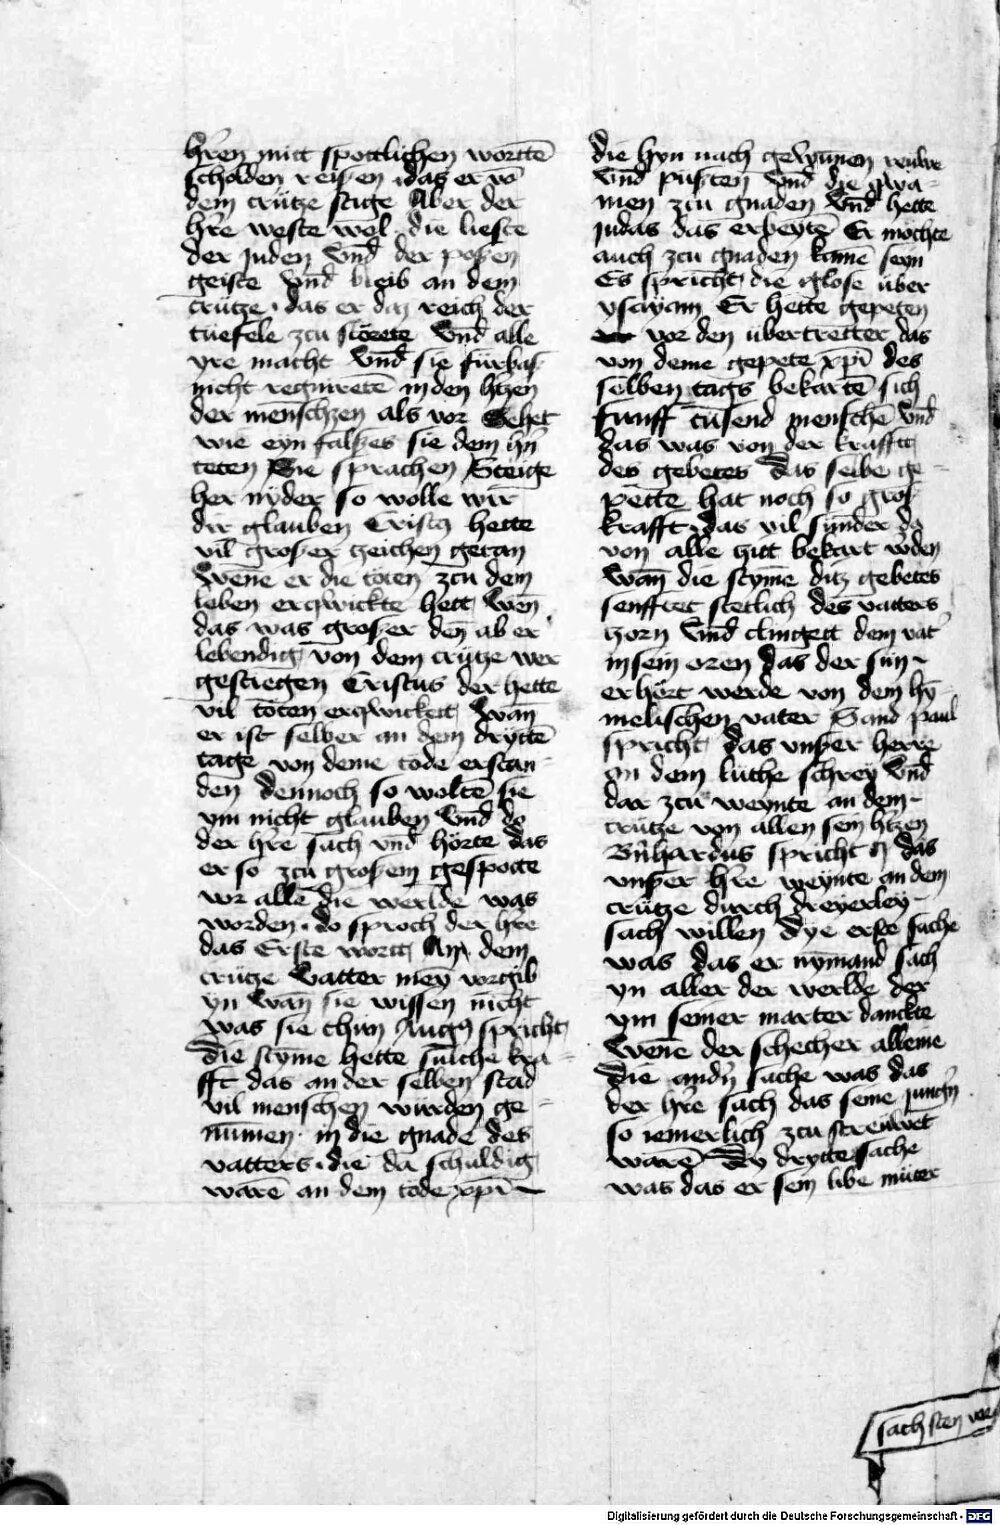 hren mitt spottlichen wortte
scholden reisen das er vō
dem crütze stige Aber der
hre weste wol die lieste
der juden vnd der posen
geiste vnd bleib an dem
crütze das er daz reich der
tuefele zcu störete vnd alle
yre macht vnd sie fürbas
nicht regnirete in den htzen
der menschzen als vor Sehet
wie eyn falszes sie dem hn
teten Sie sprachen Steige
her nyder so wolle wir
dir glauben Cristq hette
vil groser zeichen getan
Wēne er die toten zcu dem
leben erqwickte hett Wen
das was groser den ab er
lebendig von dem crütze wer
gestiegen Cristus der hette
vil toten erqwickett Wan
er ist selber an dem drytte
tage von deme tode erstan-
den dennoch so wolte sie
ym nicht glauben vnd do
der hre sach vnd hörte das
er so zcu grosem gespotte
vor alle die werlde was
worden do sproch der hre
das Erste wortt Am dem
crütze Vatter mey vorgib
yn Wan sie wissen nicht
was sie thun Augq spricht
Die styme hette sulche kra=
fft das an der selben stad
vil menschen wurden ge=
numen in die gnade des
vatters die da schuldig
ware an dem tode xpi
die hyn nach gewunen ruwe
vnd pusten vnd die qwa-
men zcu gnaden vnd hette
judas das erbeyte Er mochte
auch zcu gnaden kume sein
Es spricht die glose über
ysayam Er hette gepeten
vor den ubertretter das
von deme gepete xpi des
selben tags bekarte sich
funff tusend mensche vnd
das was von der krafft
des gebetes das selbe ge=
pette hat noch so gros
krafft das vil sunder da
von alle zitt bekart wden
Wan die styme ditz gebetes
senfftet stetlich des vatters
zorn vnd clingett dem vat
in sein oren das der sun-
er hört werde von dem hy
melischen vater Sand paul
spricht das vnser herre
an dem lüthe schrey vnd
dar zcu weynte an dem
crütze von allen sein htzen
Bnhardus spricht das
vnser hre weynte an dem
crütze durch dreyerley
sach willen Dye erste sache
was das er nymand sach
yn aller der werlde der
ym seiner marter danckte
Wene der schecher alleine
Die andn sache was das
der hre sach das seine jungn
so iemerlich zcu streuwet
ware Dy drytte sache
was das er sein libe muter
sach sten
Digitalisierung gefördert durch die Deutsche Forschungsgemeinschaft - DFG